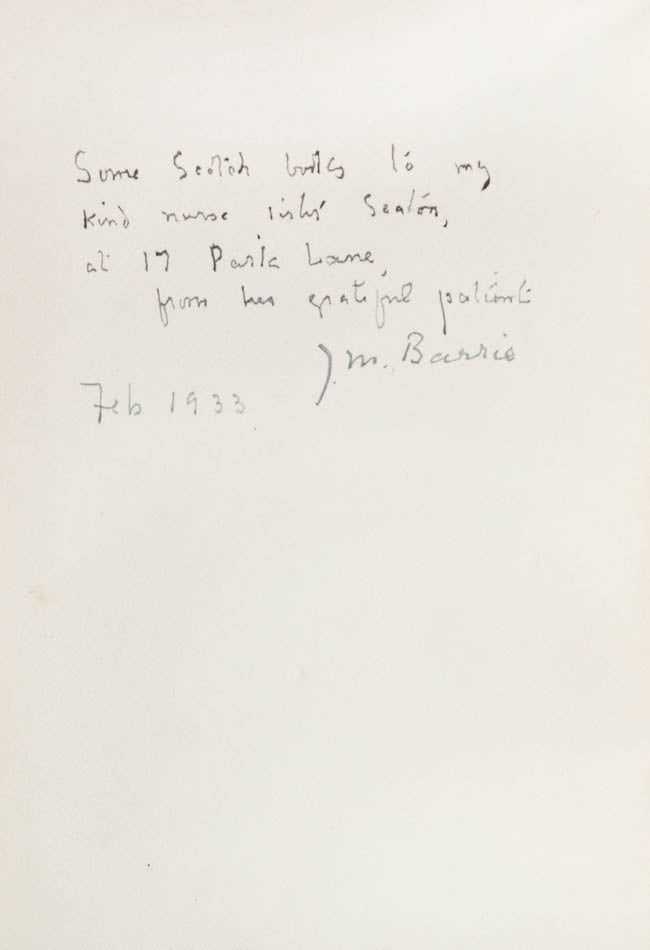 Some Scotch books to my
kind nurse sister Seaton,
at 17 Park Lane,
from her grateful patient
J. M. Barrie
Feb 1933